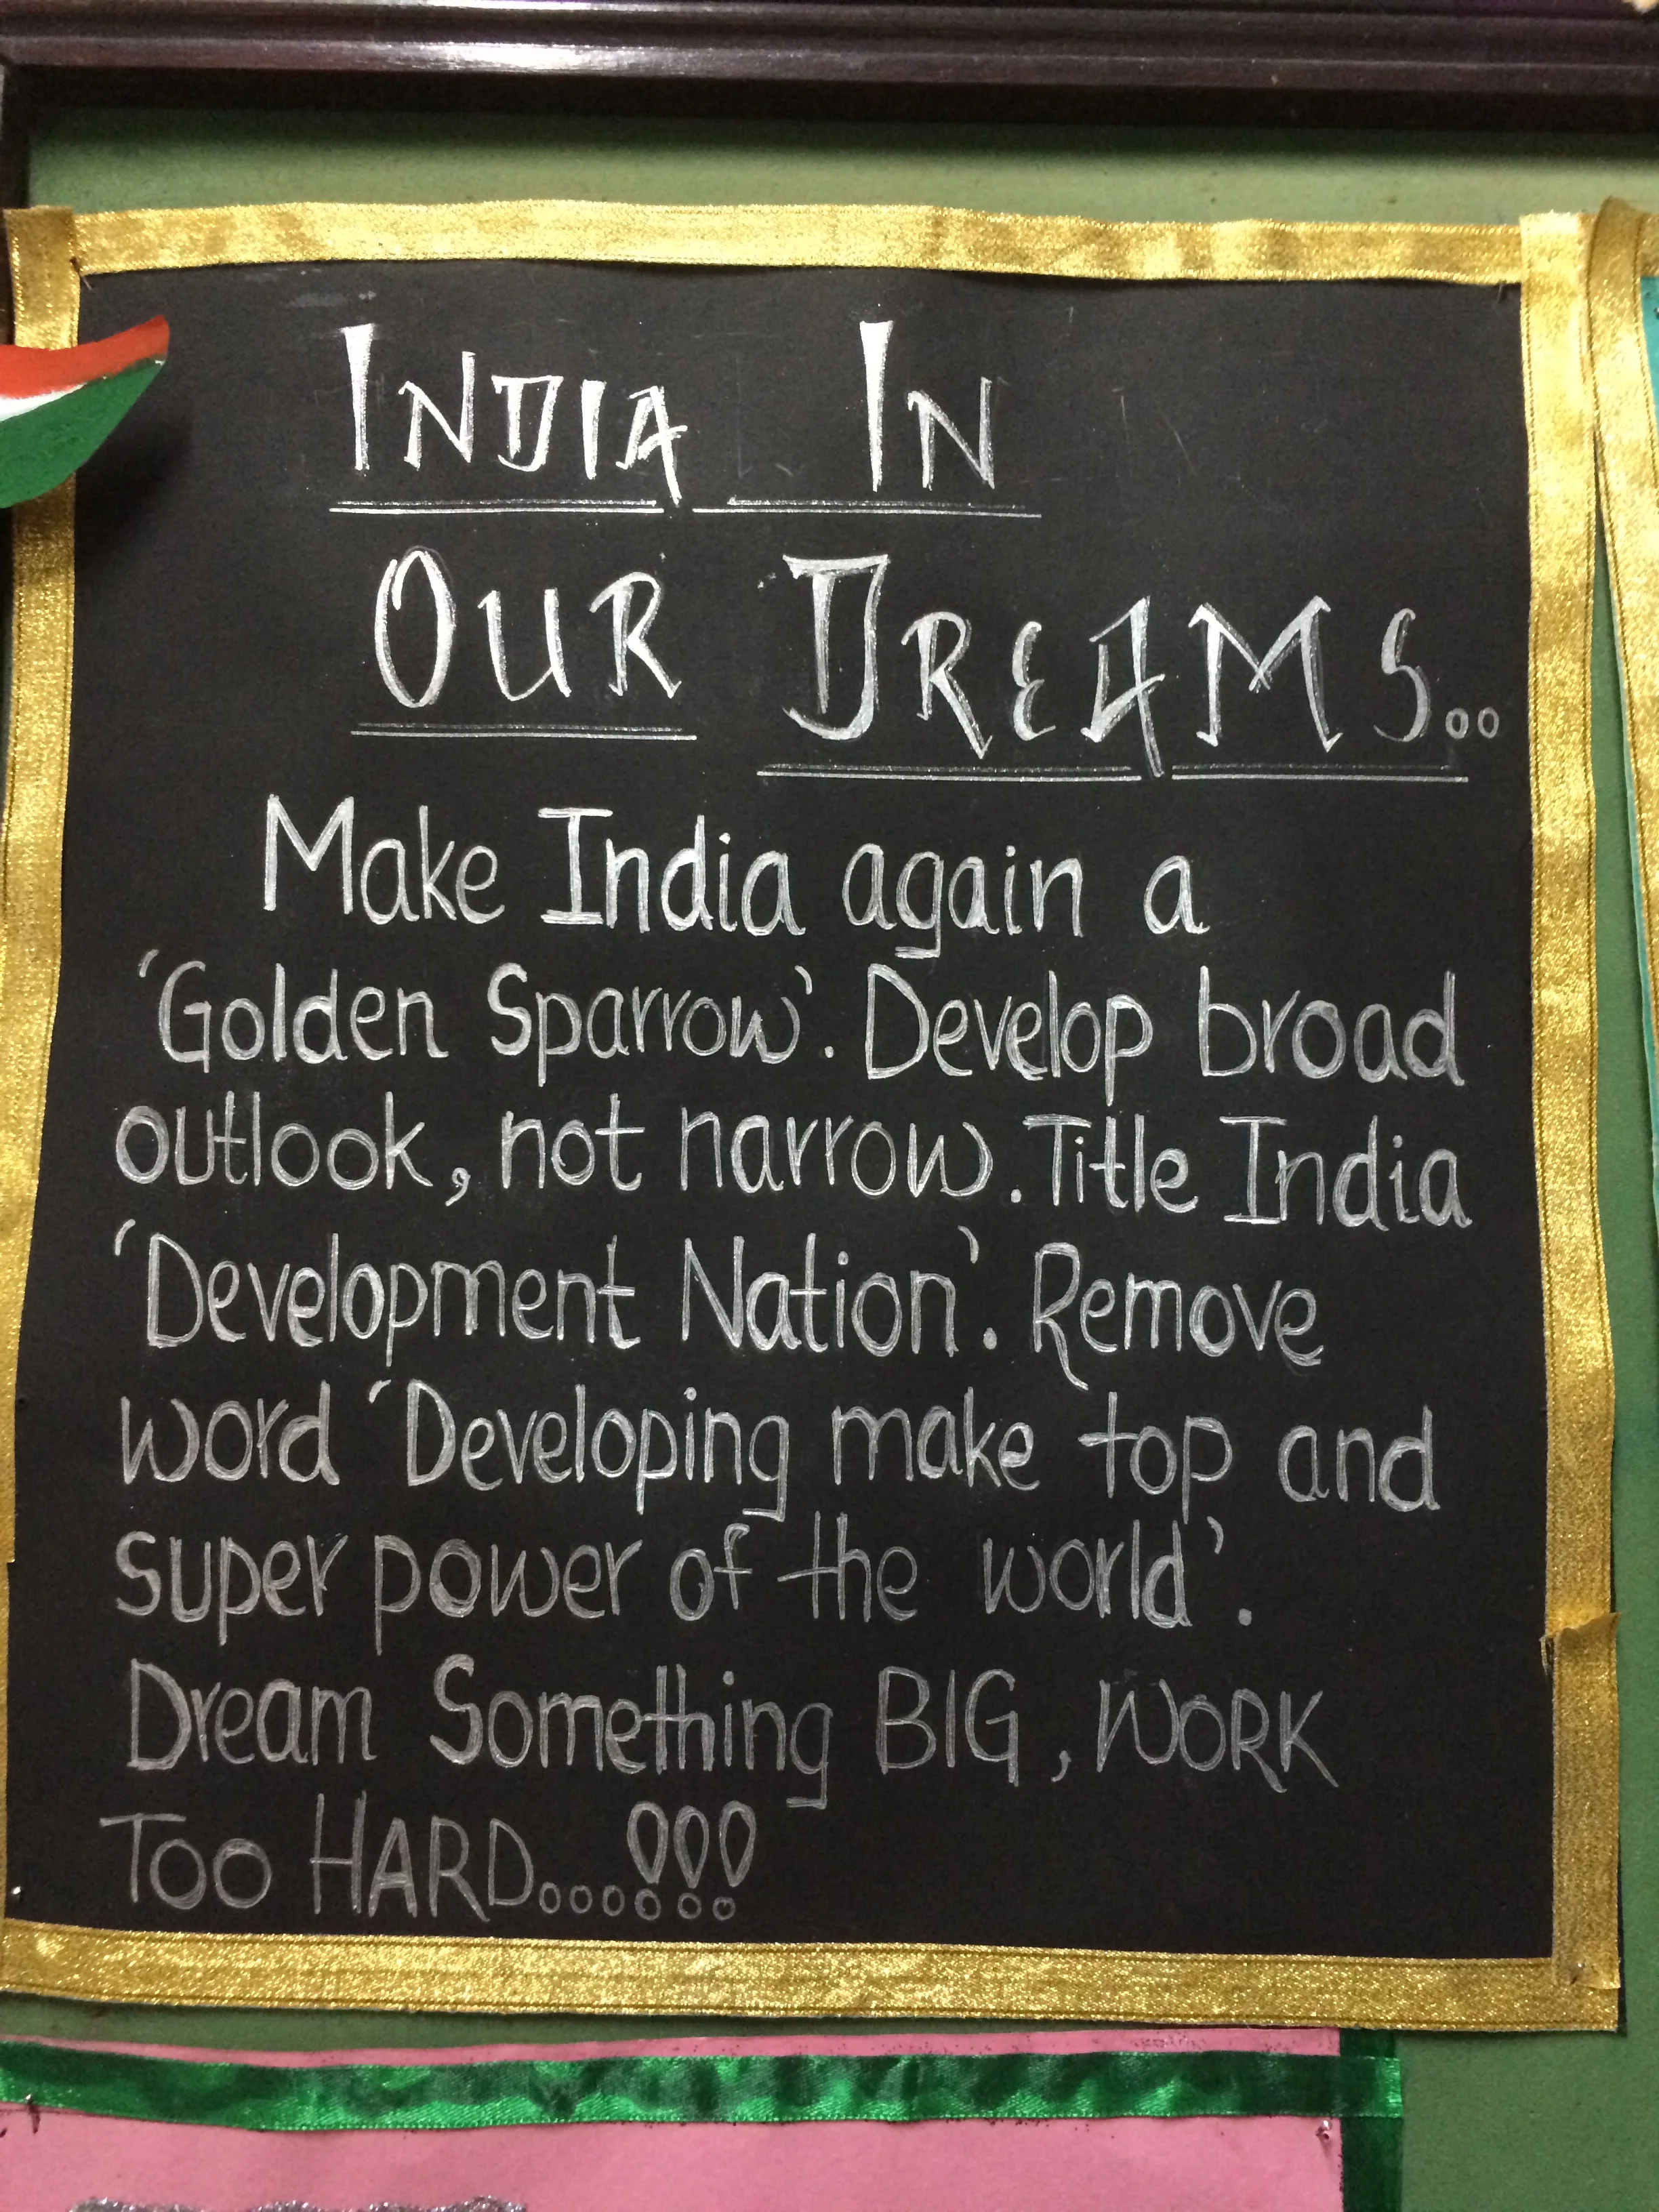 INDIA IN
OUR DREAMS..
Make India again a
'Golden Sparrow'. Develop broad
outlook, not narrow. Title India
'Development Nation'. Remove
word 'Developing make top and
super power of the world'.
Dream Something BIG, WORK
TOO HARD....!!!